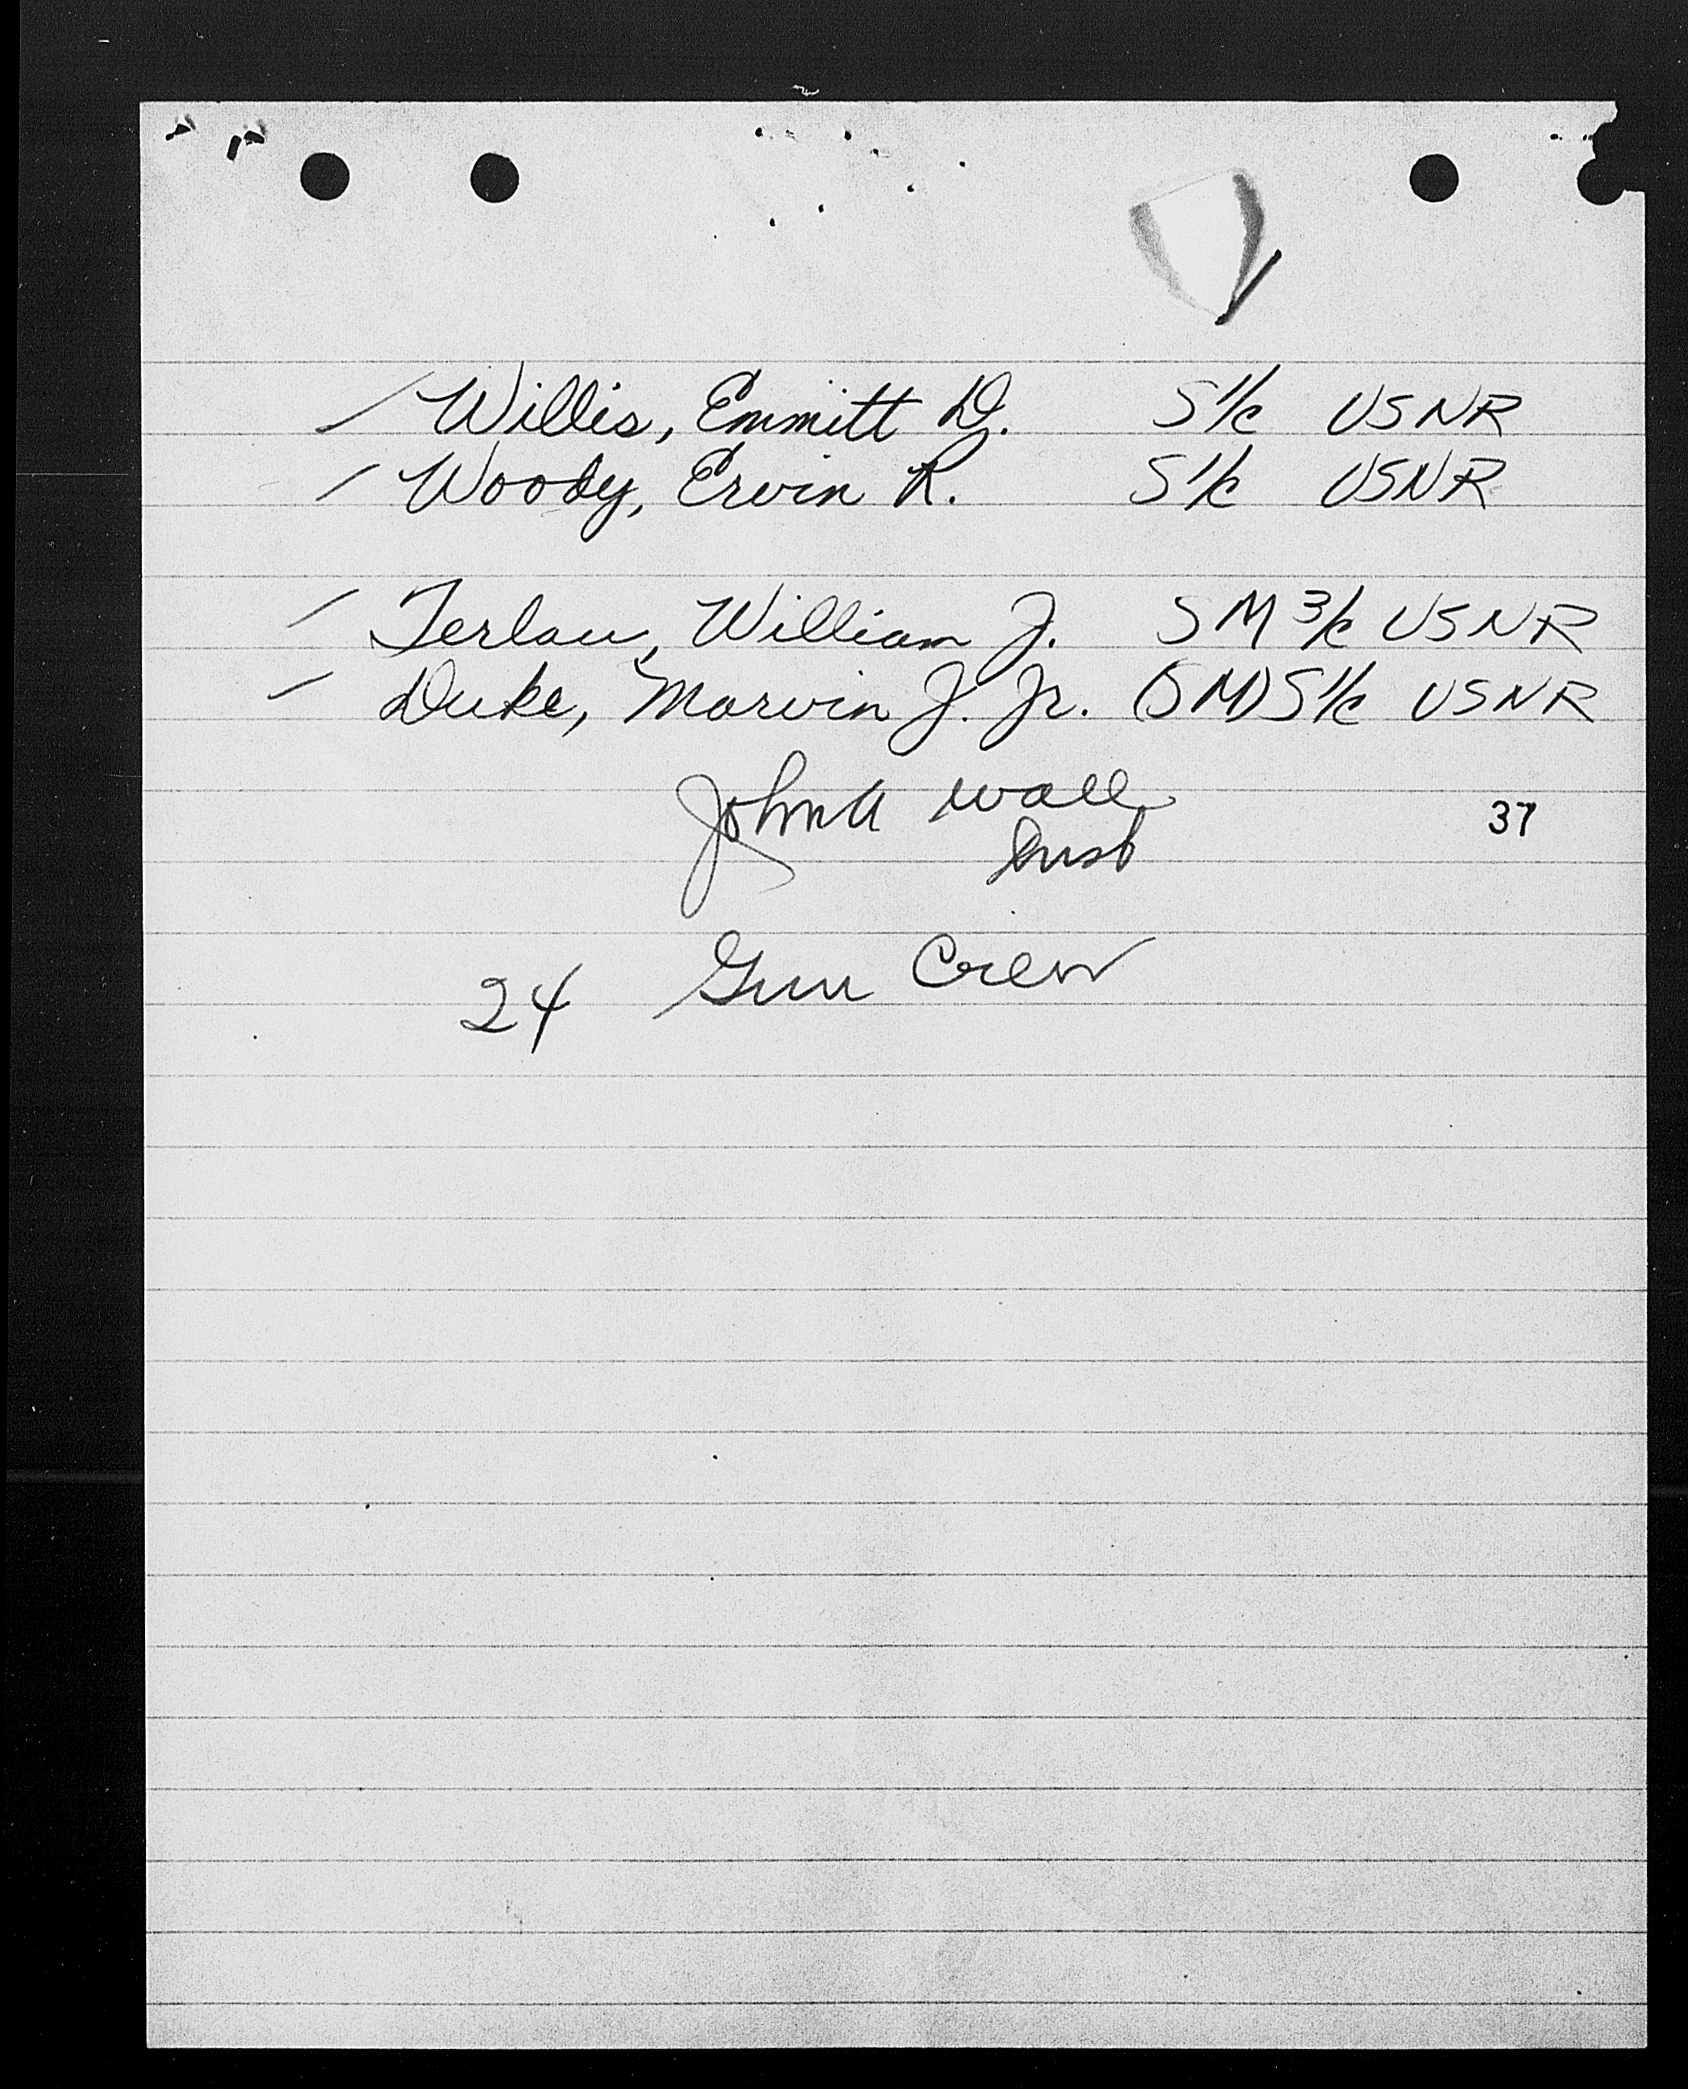 Willis, Emmitt D. S 1/c USNR
Woody, Ervin R. S 1/c USNR
Terlau, William J. SM 3/c USNR
Duke, Marvin J. Jr. (SM) S 1/c USNR
John A Wall
37
24 Gun Crew